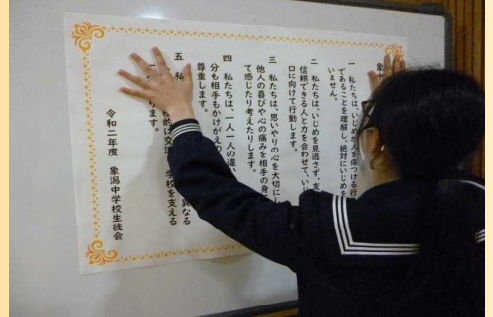 象
一 私たちは、いじめが人を傷つける行
であることを理解し、絶対にいじめを
いません。
二 私たちは、いじめを見逃さず、友
信頼できる人と力を合わせて、い
口に向けて行動します。
三 私たちは、思いやりの心を大切にし
他人の喜びや心の痛みを相手の身
て感じたり考えたりします。
四 私たちは、一人一人の違
分も相手もかけがえの 異なる
尊重します。
五 私 的に交流 学校を支える
一 ります。
令和二年度 象潟中学校生徒会